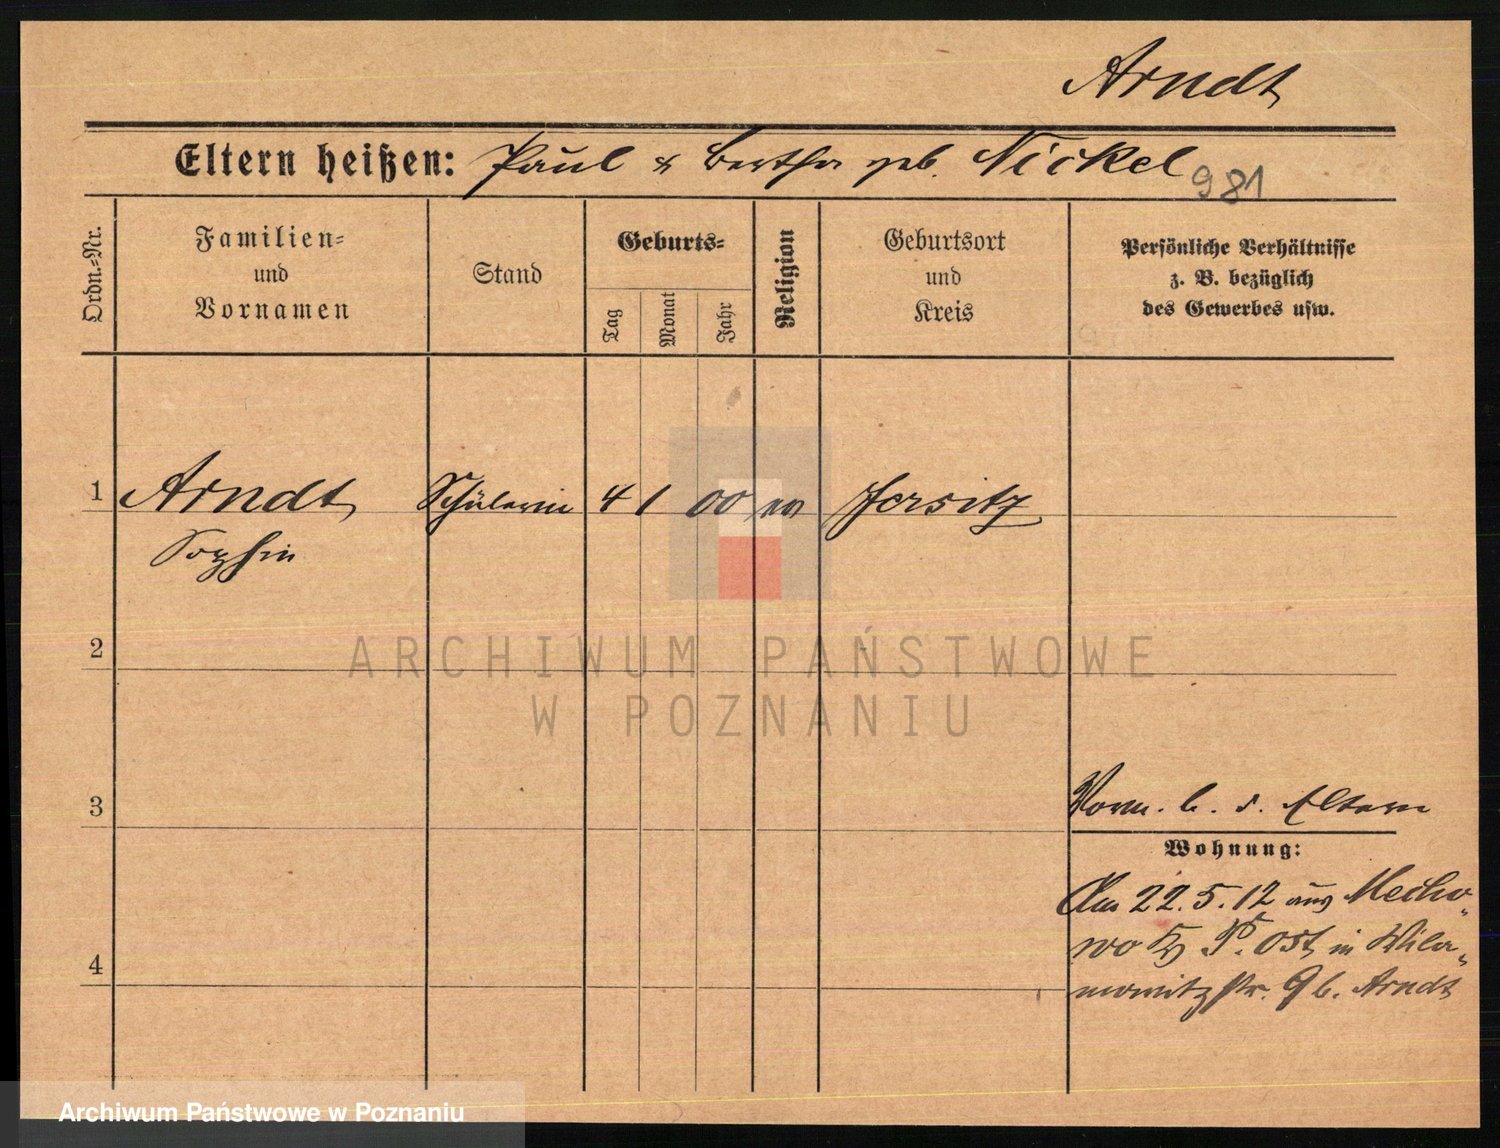 Arndt
Eltern heißen: Paul & Bertha geb. Nickel
981
Ordn.-Nr.
Familien-
und
Vornamen
Stand
Geburts-
Tag
Monat
Jahr
Religion
Geburtsort
und
Kreis
Persönliche Verhältnisse
z. B. bezüglich
des Gewerbes usw.
1 Arndt Schülerin 4 1 00 ev Jersitz
Sophie
2
ARCHIWUM PAŃSTWOWE
W POZNANIU
3
Vorm. b. d. Eltern
Wohnung:
Am 22.5.12 aus Mecho-
wo Kr P. Ost, in Wila-
mowitzstr. 9 b. Arndt
4
Archiwum Państwowe w Poznaniu